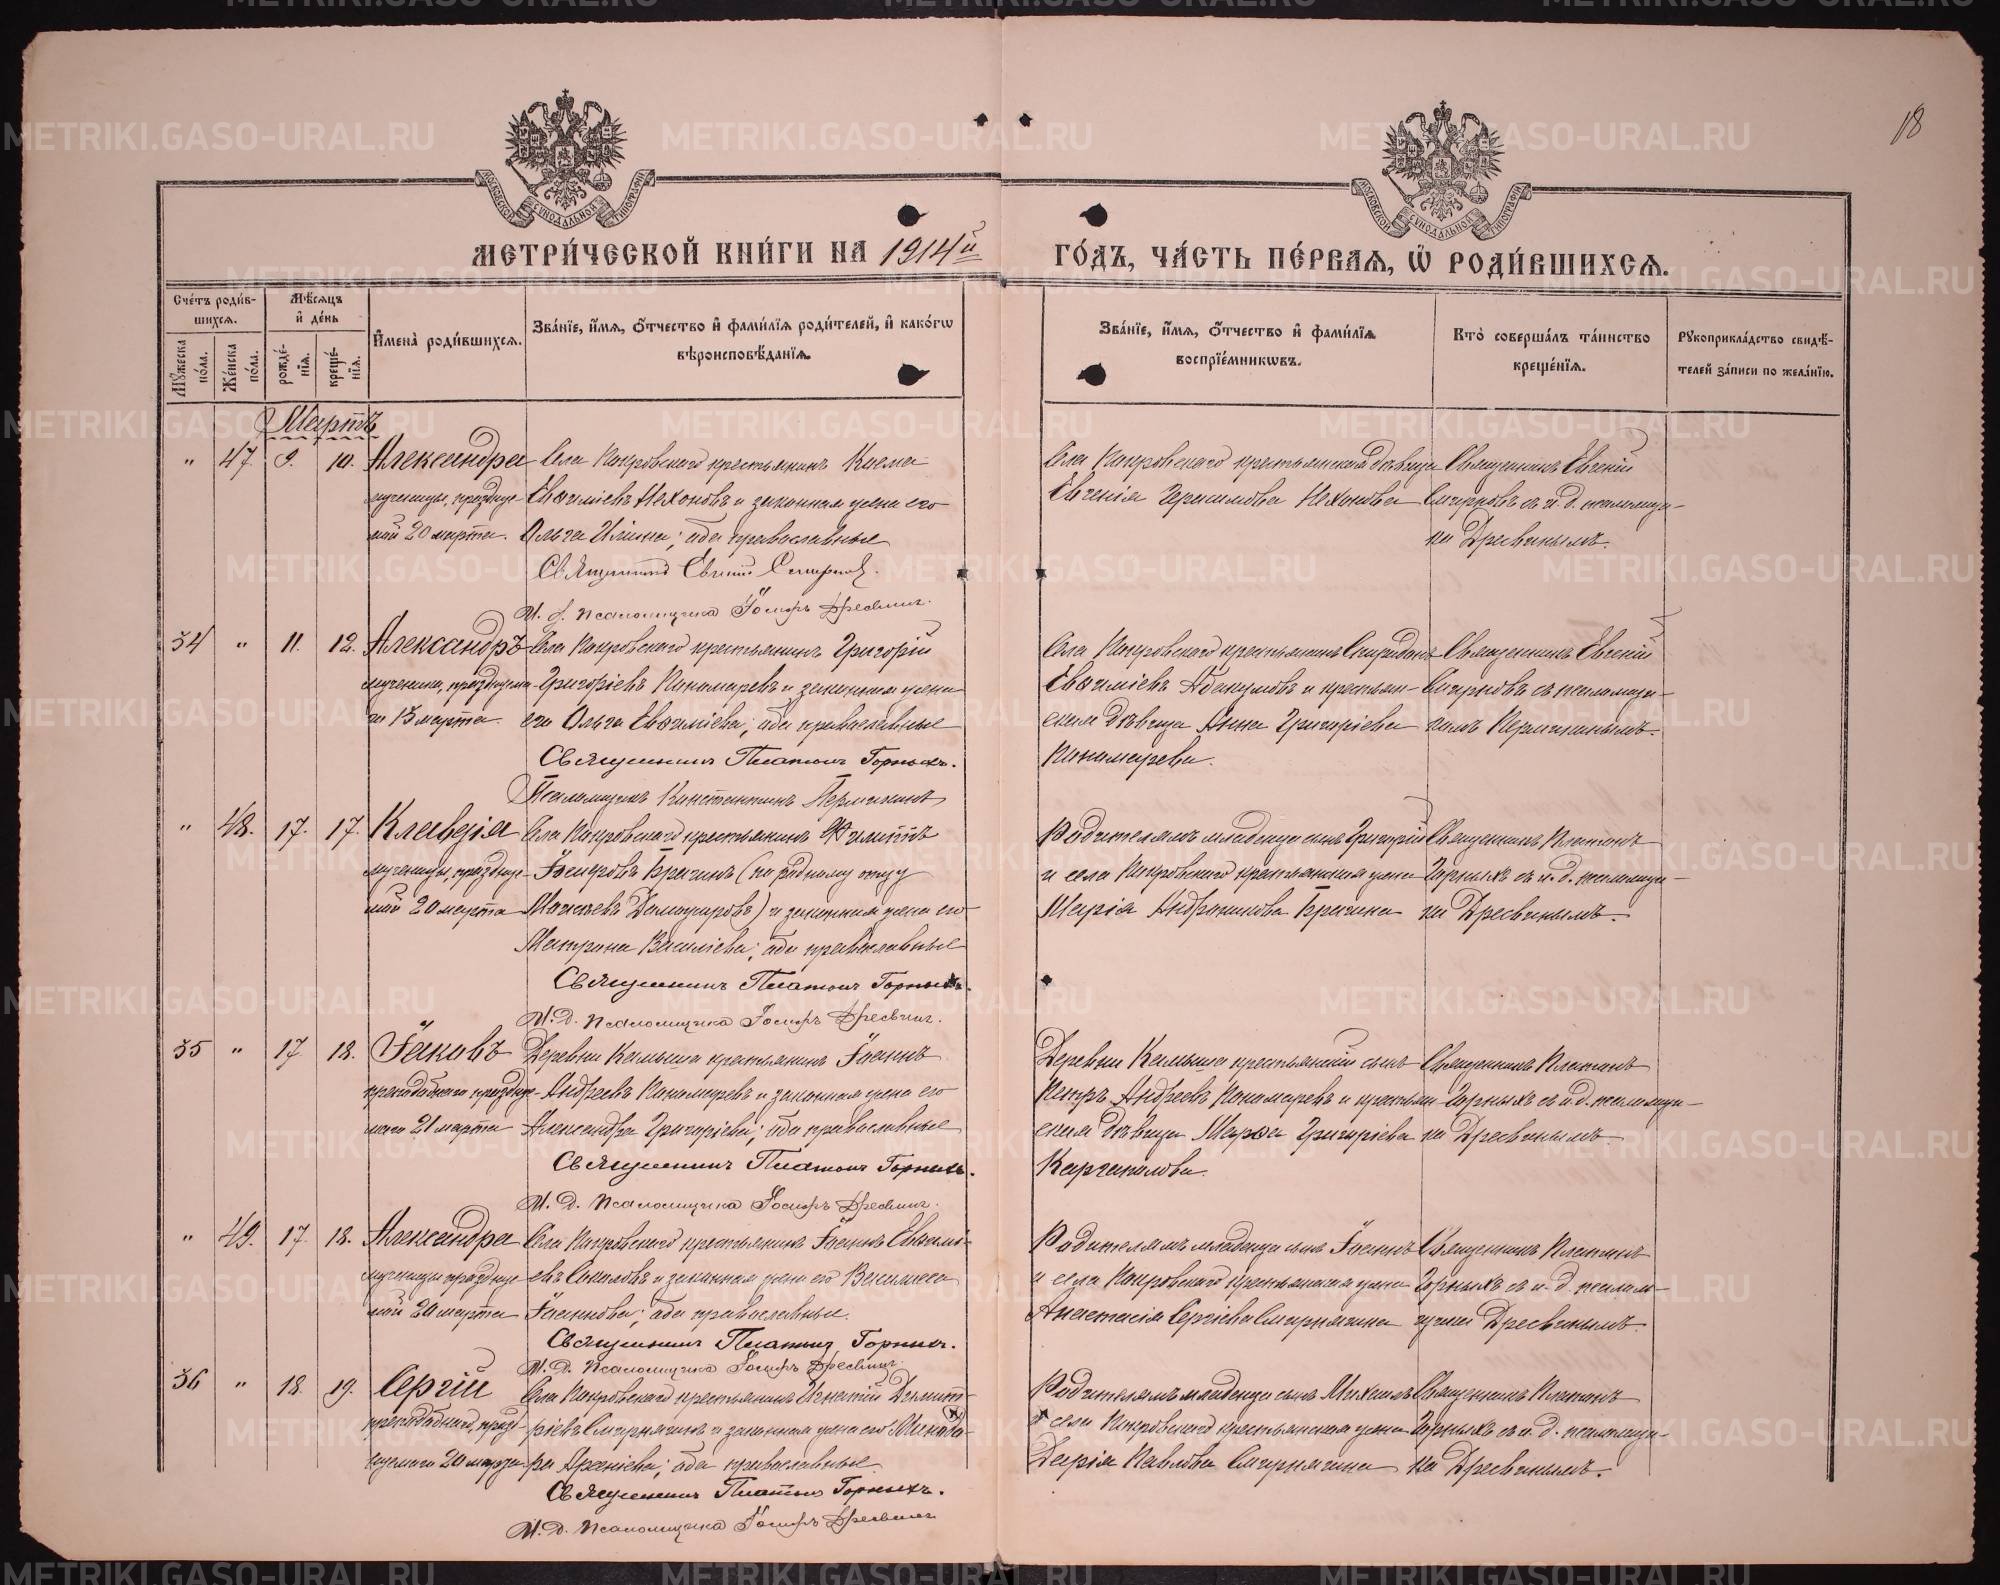 18
МОСКОВСКОЙ СѴНОДАЛЬНОЙ ТИПОГРАФІИ
МОСКОВСКОЙ СѴНОДАЛЬНОЙ ТИПОГРАФІИ
МЕТРИ́ЧЕСКОЙ КНИ́ГИ НА 1914й ГО́ДЪ, ЧА́СТЬ ПЕ́РВАЯ, Ѡ РОДИ́ВШИХСЯ.
Сче́тъ роди́в-
шихся.
Мѣ́сяцъ
и де́нь
Имена̀ роди́вшихся.
Зва́нїе, и́мя, о́тчество и фами́лїя роди́телей, и како́гѡ
вѣроисповѣ́данїя.
Зва́нїе, и́мя, о́тчество и фами́лїя
воспрїе́мникѡвъ.
Кто̀ соверша́лъ та́инство
креще́нїя.
Рукоприкла́дство свидѣ́-
телей за́писи по жела́нїю.
Му́жеска
по́ла.
Же́нска
по́ла.
рожде́-
нїя.
креще́-
нїя.
Мартъ
" 47. 9. 10. Александра Села Покровскаго крестьянинъ Косма
мученицы, праздуе-
мой 20 марта.
Евѳиміевъ Нехоновъ и законная жена его
Ольга Ильина; оба православные
Священникъ Евгений Смирновъ.
И. д. псаломщика Іосифъ Дресвинъ.
Села Покровскаго крестьянская дѣвица
Евгенія Герасимова Нехонова
Священникъ Евгеній
Смирновъ съ и. д. псаломщи-
ка Дресвинымъ.
34 " 11. 12. Александръ
мученика, празднуема-
го 13 марта.
Села Покровскаго крестьянинъ Григорій
Григоріевъ Пономаревъ и законная жена
его Ольга Евѳиміева; оба православные
Священникъ Платонъ Горныхъ.
Псаломщикъ Константинъ Пермикинъ
Села Покровскаго крестьянинъ Спиридонъ
Евѳиміевъ Абакумовъ и крестьян-
ская дѣвица Анна Григоріева
Пономарева.
Священникъ Евгеній
Смирновъ съ псаломщи-
комъ Пермикинымъ.
" 48. 17. 17. Клавдія
мученицы, праздуе-
мой 20 марта
Села Покровскаго крестьянинъ Филиппъ
Іосифовъ Брагинъ (по родному отцу
) и законная жена его
Матрона Василіева; оба православные
Священникъ Платонъ Горныхъ.
И. д. псаломщика Іосифъ Дресвинъ.
Родителямъ младенца сынъ Григорій
и села Покровскаго крестьянская жена
Марія Андроникова Брагина
Священникъ Платонъ
Горныхъ съ и. д. псаломщи-
ка Дресвинымъ.
35 " 17. 18. Іаковъ
преподобнаго праздуе-
маго 21 марта
Деревни Камыша крестьянинъ Іоаннъ
Андреевъ Пономаревъ и законная жена его
Александра Григоріева; оба православные
Священникъ Платонъ Горныхъ.
И. д. псаломщика Іосифъ Дресвинъ.
Деревни Камыша крестьянскій сынъ
Петръ Андреевъ Пономаревъ и крестьян-
ская дѣвица Марѳа Григоріева
Каргаполова.
Священникъ Платонъ
Горныхъ съ и. д. псаломщи-
ка Дресвинымъ.
" 49. 17. 18. Александра
мученицы праздуе-
мой 20 марта
Села Покровскаго крестьянинъ Іоаннъ Евѳимі-
евъ Соколовъ и законная жена его Василиса
Іоаннова; оба православные.
Священникъ Платонъ Горныхъ.
И. д. псаломщика Іосифъ Дресвинъ.
Родителямъ младенца сынъ Іоаннъ
и села Покровскаго крестьянская жена
Анастасія Сергіева Смирнягина
Священникъ Платонъ
Горныхъ съ и. д. псалом-
щика Дресвинымъ.
36 " 18. 19. Сергій
преподобнаго, празд-
нуемаго 20 марта
Села Покровскаго крестьянинъ Игнатій Димит-
ріевъ Смирнягинъ и законная жена его Минодо-
ра Арсеніева; оба православные.
Священникъ Платонъ Горныхъ.
И. д. псаломщика Іосифъ Дресвинъ
Родителямъ младенца сынъ Михаилъ
и села Покровскаго крестьянская жена
Дарія Павлова Смирнягина
Священникъ Платонъ
Горныхъ съ и. д. псаломщи-
ка Дресвинымъ.
METRIKI.GASO-URAL.RU